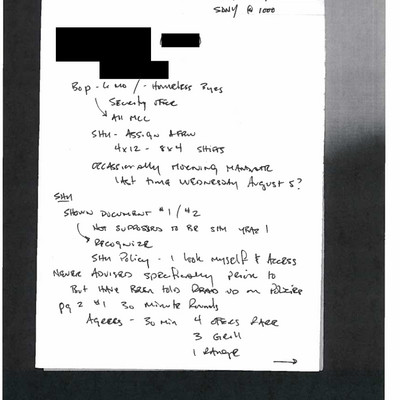 SDNY @ 1000
BOP - 6 mo / - Homeless
Security
All MCC
SHU - Assign
4x12 - 8x4 shifts
occassionally morning
Last time Wednesday August 5?
SHU
Shown Document #1/#2
Not supposed to be SHU
Recognize
SHU Policy - I look myself & Access
Never Advised specifically prior to
But have been told Read up on Policies
pg 2 #1 30 minute rounds
Agrees - 30 min 4
3 Grill
1 Range